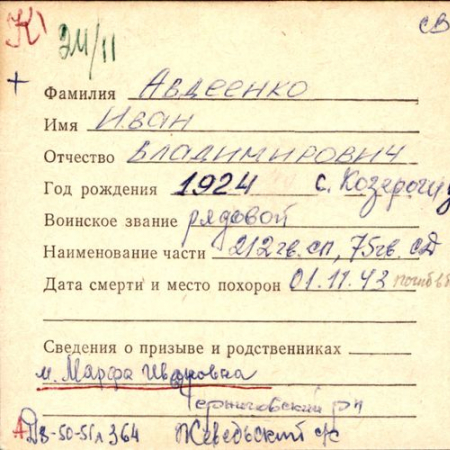 К1 ЭЛ/11 СВ
+
Фамилия Авдеенко
Имя Иван
Отчество Владимирович
Год рождения 1924 с. Козероги
Воинское звание рядовой
Наименование части 212 гв. сп, 75 гв. сД
Дата смерти и место похорон 01.11.43 погиб в б
Сведения о призыве и родственниках
м. Марфа Ивановна
Черниговский р-н
Жеведьский с/с